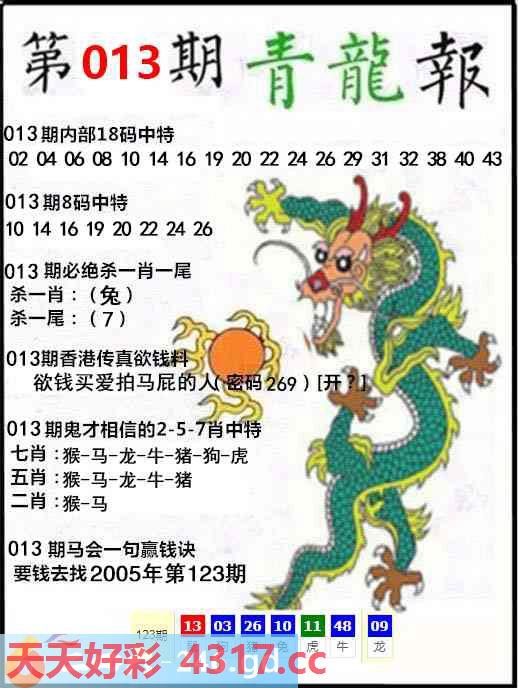 第013期青龍報
013期内部18码中特
02 04 06 08 10 14 16 19 20 22 24 26 29 31 32 38 40 43
013期8码中特
10 14 16 19 20 22 24 26
013期必绝杀一肖一尾
杀一肖：（兔）
杀一尾：（7）
013期香港传真欲钱料
欲钱买爱拍马屁的人(密码269)[开？]
013期鬼才相信的2-5-7肖中特
七肖：猴-马-龙-牛-猪-狗-虎
五肖：猴-马-龙-牛-猪
二肖：猴-马
013期马会一句赢钱诀
要钱去找2005年第123期
123期 13 03 26 10 11 48 09
鼠 狗 猪 兔 虎 牛 龙
天天好彩 4317.cc